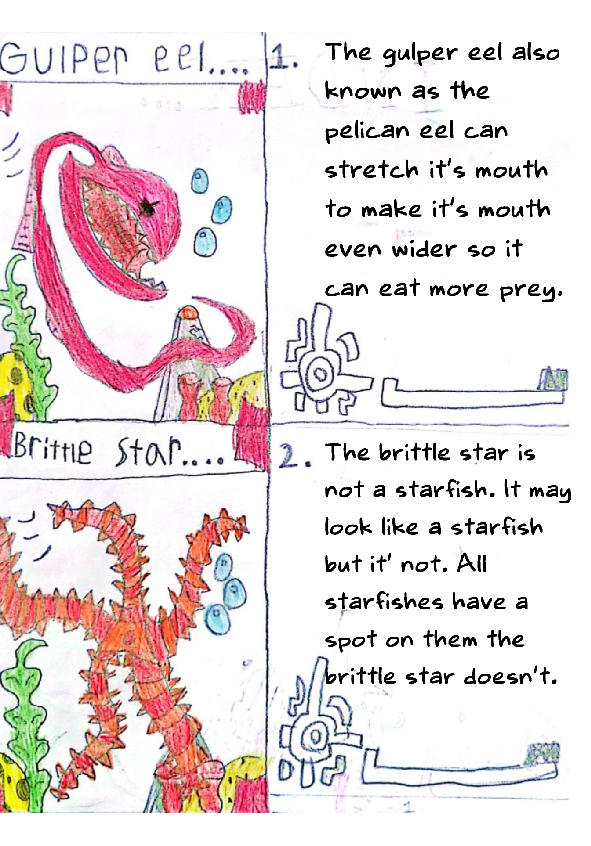 Gulper eel....
1. The gulper eel also
known as the
pelican eel can
stretch it's mouth
to make it's mouth
even wider so it
can eat more prey.
Brittle star....
2. The brittle star is
not a starfish. It may
look like a starfish
but it' not. All
starfishes have a
spot on them the
brittle star doesn't.